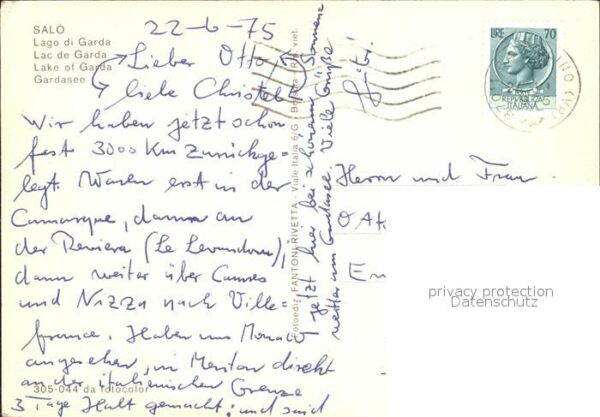 SALÒ
Lago di Garda
Lac de Garda
Lake of Garda
Gardasee
22-6-75
Lieber Otto!
liebe Christel!
Wir haben jetzt schon
fast 3000 Km zurückge-
legt. Waren erst in der
Camargue, dann an
der Reviera (Le Levandou),
dann weiter über Cannes
und Nizza nach Ville-
france. Haben uns Monaco
angesehen, in Menton direkt
an der italienischen Grenze
3 Tage Halt gemacht; und sind
jetzt hier bei schönem
weiter am Gardasee. Viele Grüße
305-044 da fotocolor
Fotoediz. FANTONI RIVETTA - Viale Italia 6/G - Ris. viet.
LIRE 70
REPVBBLICA
ITALIANA
Herrn und Frau
privacy protection
Datenschutz